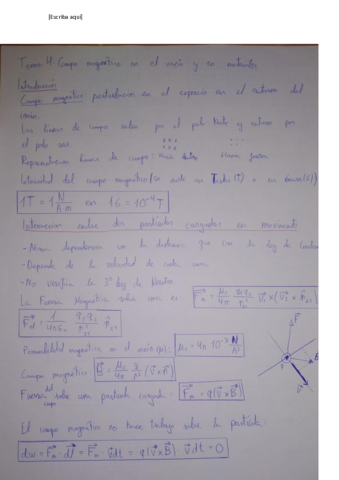 [Escriba aquí]
Tema 4 Campo magnético en el vacío y en materiales
Introducción
Campo magnético perturbación en el espacio en el entorno del
imán.
Las líneas de campo salen por el polo Norte y entran por
el polo sur.
Representación líneas de campo: Hacia dentro Hacia fuera
Intensidad del campo magnético (se mide en Tesla (T) o en Gauss (G))
1T = 1 N/A·m 1G = 10⁻⁴ T
Interacción entre dos partículas cargadas en movimiento
- Misma dependencia con la distancia que con la ley de Coulomb
- Depende de la velocidad de cada carga
- No verifica la 3ª ley de Newton
La Fuerza Magnética sobre
Permeabilidad magnética en el vacío (μ₀): μ₀ = 4π 10⁻⁷ N/A²
Campo magnético: B = μ₀/4π q/r² (v x r)
Fuerza del campo sobre partícula cargada: Fₘ = q(v x B)
El campo magnético no hace trabajo sobre la partícula:
dw = Fₘ · dl = Fₘ · vdt = q(v x B) · vdt = 0